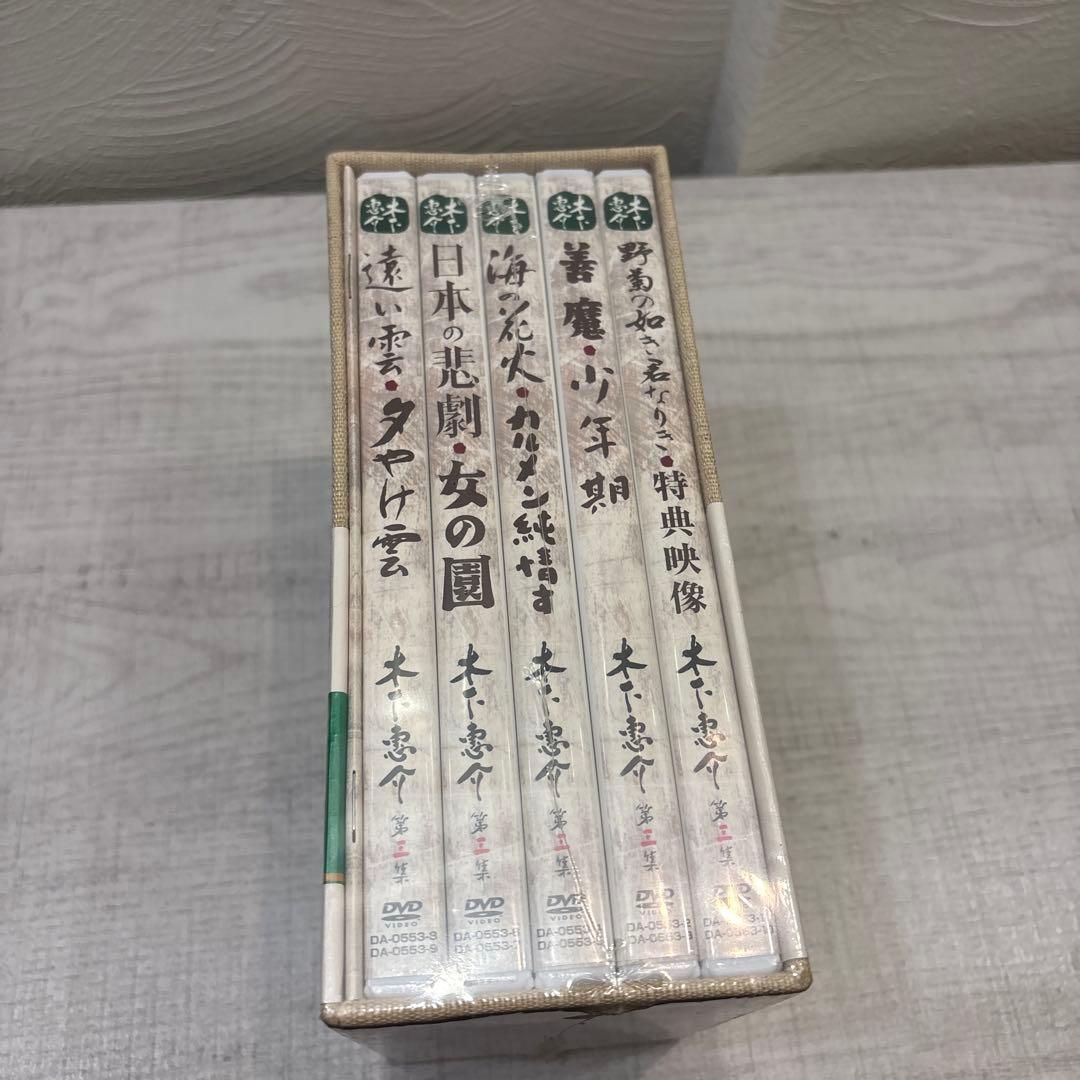 木下惠介
遠い雲・夕やけ雲
木下惠介
第三集
DVD
VIDEO
DA-0553-8
DA-0553-9
木下惠介
日本の悲劇・女の園
木下惠介
第三集
DVD
VIDEO
DA-0553-6
DA-0553-7
木下惠介
海の花火・カルメン純情す
木下惠介
第三集
DVD
木下惠介
善魔・少年期
木下惠介
第三集
DVD
VIDEO
DA-0553-2
DA-0553-3
木下惠介
野菊の如き君なりき・特典映像
木下惠介
第三集